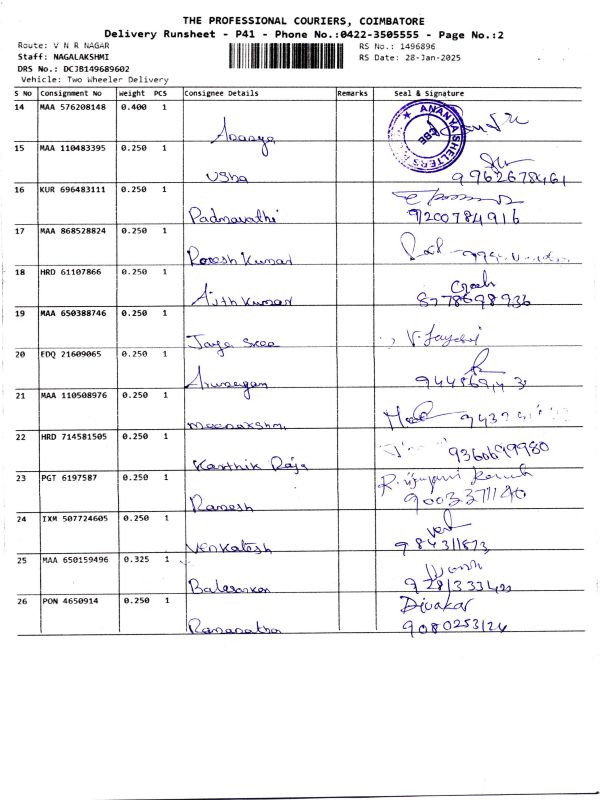 THE PROFESSIONAL COURIERS, COIMBATORE
Delivery Runsheet - P41 - Phone No.:0422-3505555 - Page No.:2
Route: V N R NAGAR
RS No.: 1496896
Staff: NAGALAKSHMI
RS Date: 28-Jan-2025
DRS No.: DCJB149689602
Vehicle: Two Wheeler Delivery
S No Consignment No Weight PCS Consignee Details Remarks Seal & Signature
14 MAA 576208148 0.400 1
ANANYA SHELTERS
CBE
Ananya
15 MAA 110483395 0.250 1
Usha
16 KUR 696483111 0.250 1
Padmavathi 9200784916
17 MAA 868528824 0.250 1
Poresh Kumar
18 HRD 61107866 0.250 1
Ajith Kumar 8778698936
19 MAA 650388746 0.250 1
Jaya Sree V. Jayasri
20 EDQ 21609065 0.250 1
Arumugam
21 MAA 110508976 0.250 1
Meenakshmi
22 HRD 714581505 0.250 1
Karthik Raja 9360699980
23 PGT 6197587 0.250 1
Ramesh 9003371140
24 IXM 507724605 0.250 1
Venkatesh
25 MAA 650159496 0.325 1
26 PON 4650914 0.250 1
Divakar
9080253124